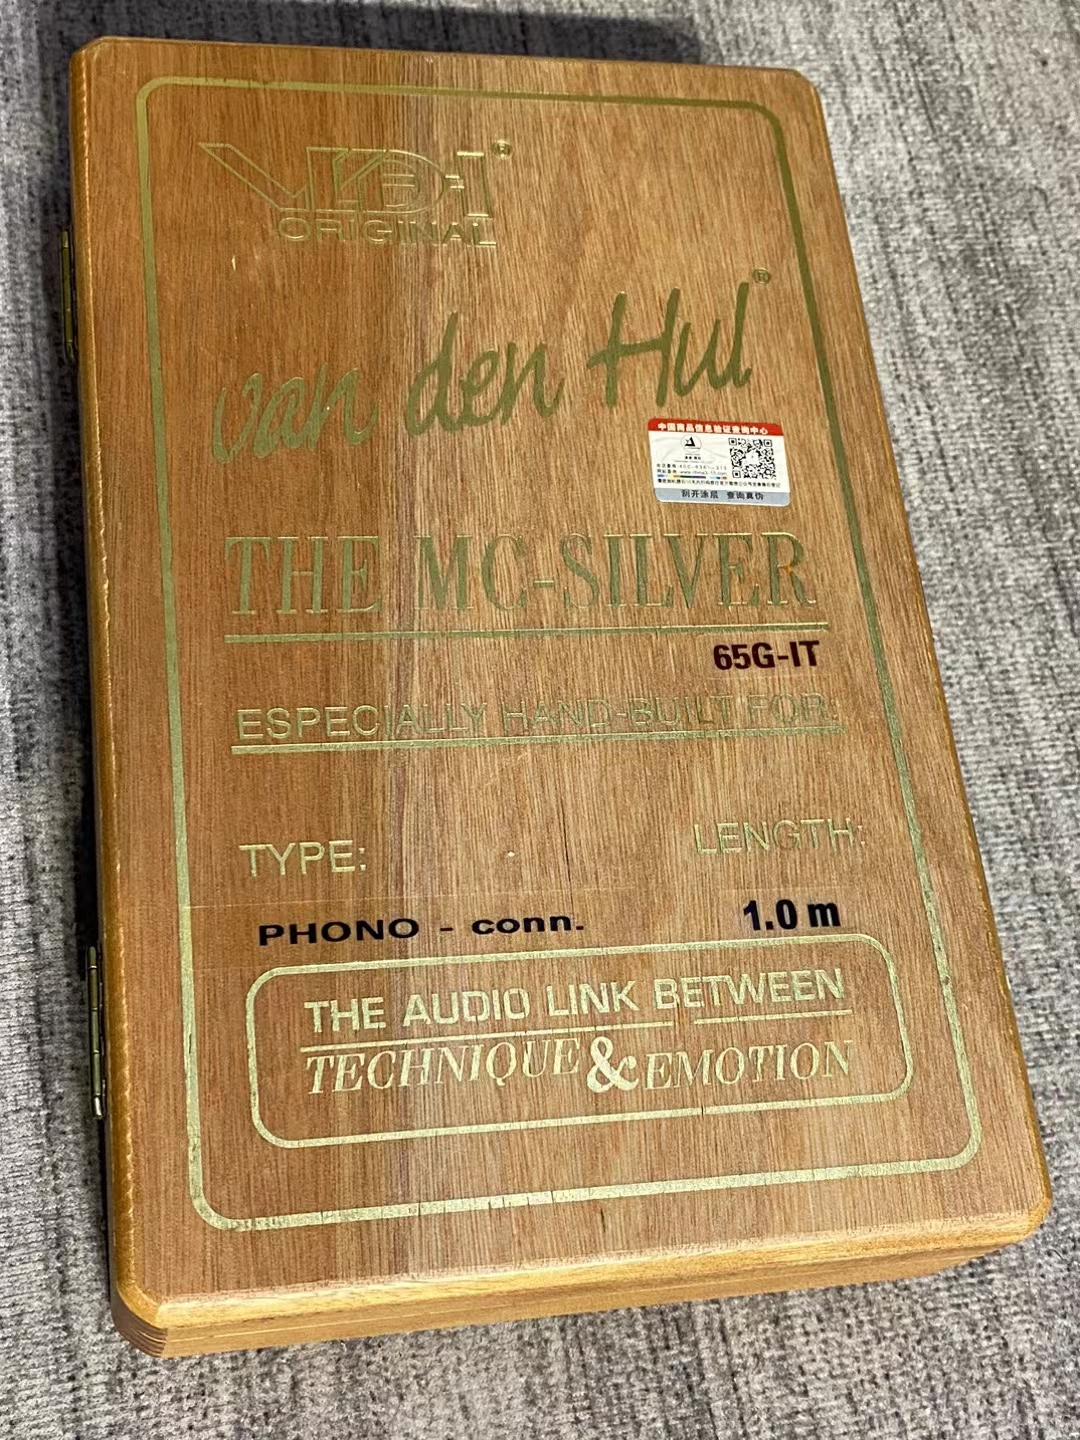 VDH®
ORIGINAL
van den Hul®
中国商品信息验证查询中心
刮开涂层 查询真伪
THE MC-SILVER
65G-IT
ESPECIALLY HAND-BUILT FOR:
TYPE:
LENGTH:
PHONO - conn.
1.0 m
THE AUDIO LINK BETWEEN
TECHNIQUE & EMOTION